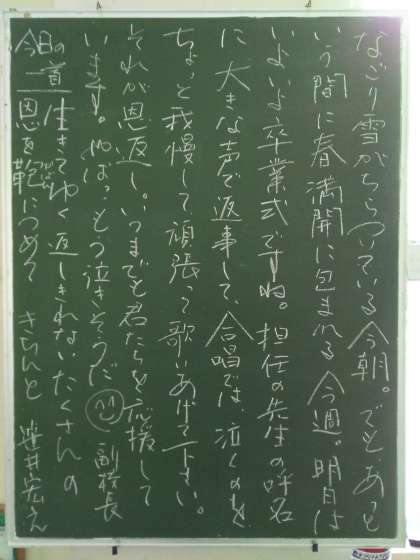 なごり雪がちらついている今朝。でも、あっと
いう間に春満開に包まれる今週。明日は
いよいよ卒業式ですね。担任の先生の呼名
に大きな声で返事して、合唱では、泣くのを
ちょっと我慢して頑張って歌いあげて下さい。
それが恩返し。いつまでも君たちを応援して
います。やばっもう泣きそうだ 副校長
今日の一首 生きてゆく返しきれないたくさんの
恩を鞄につめて きちんと 笹井宏之